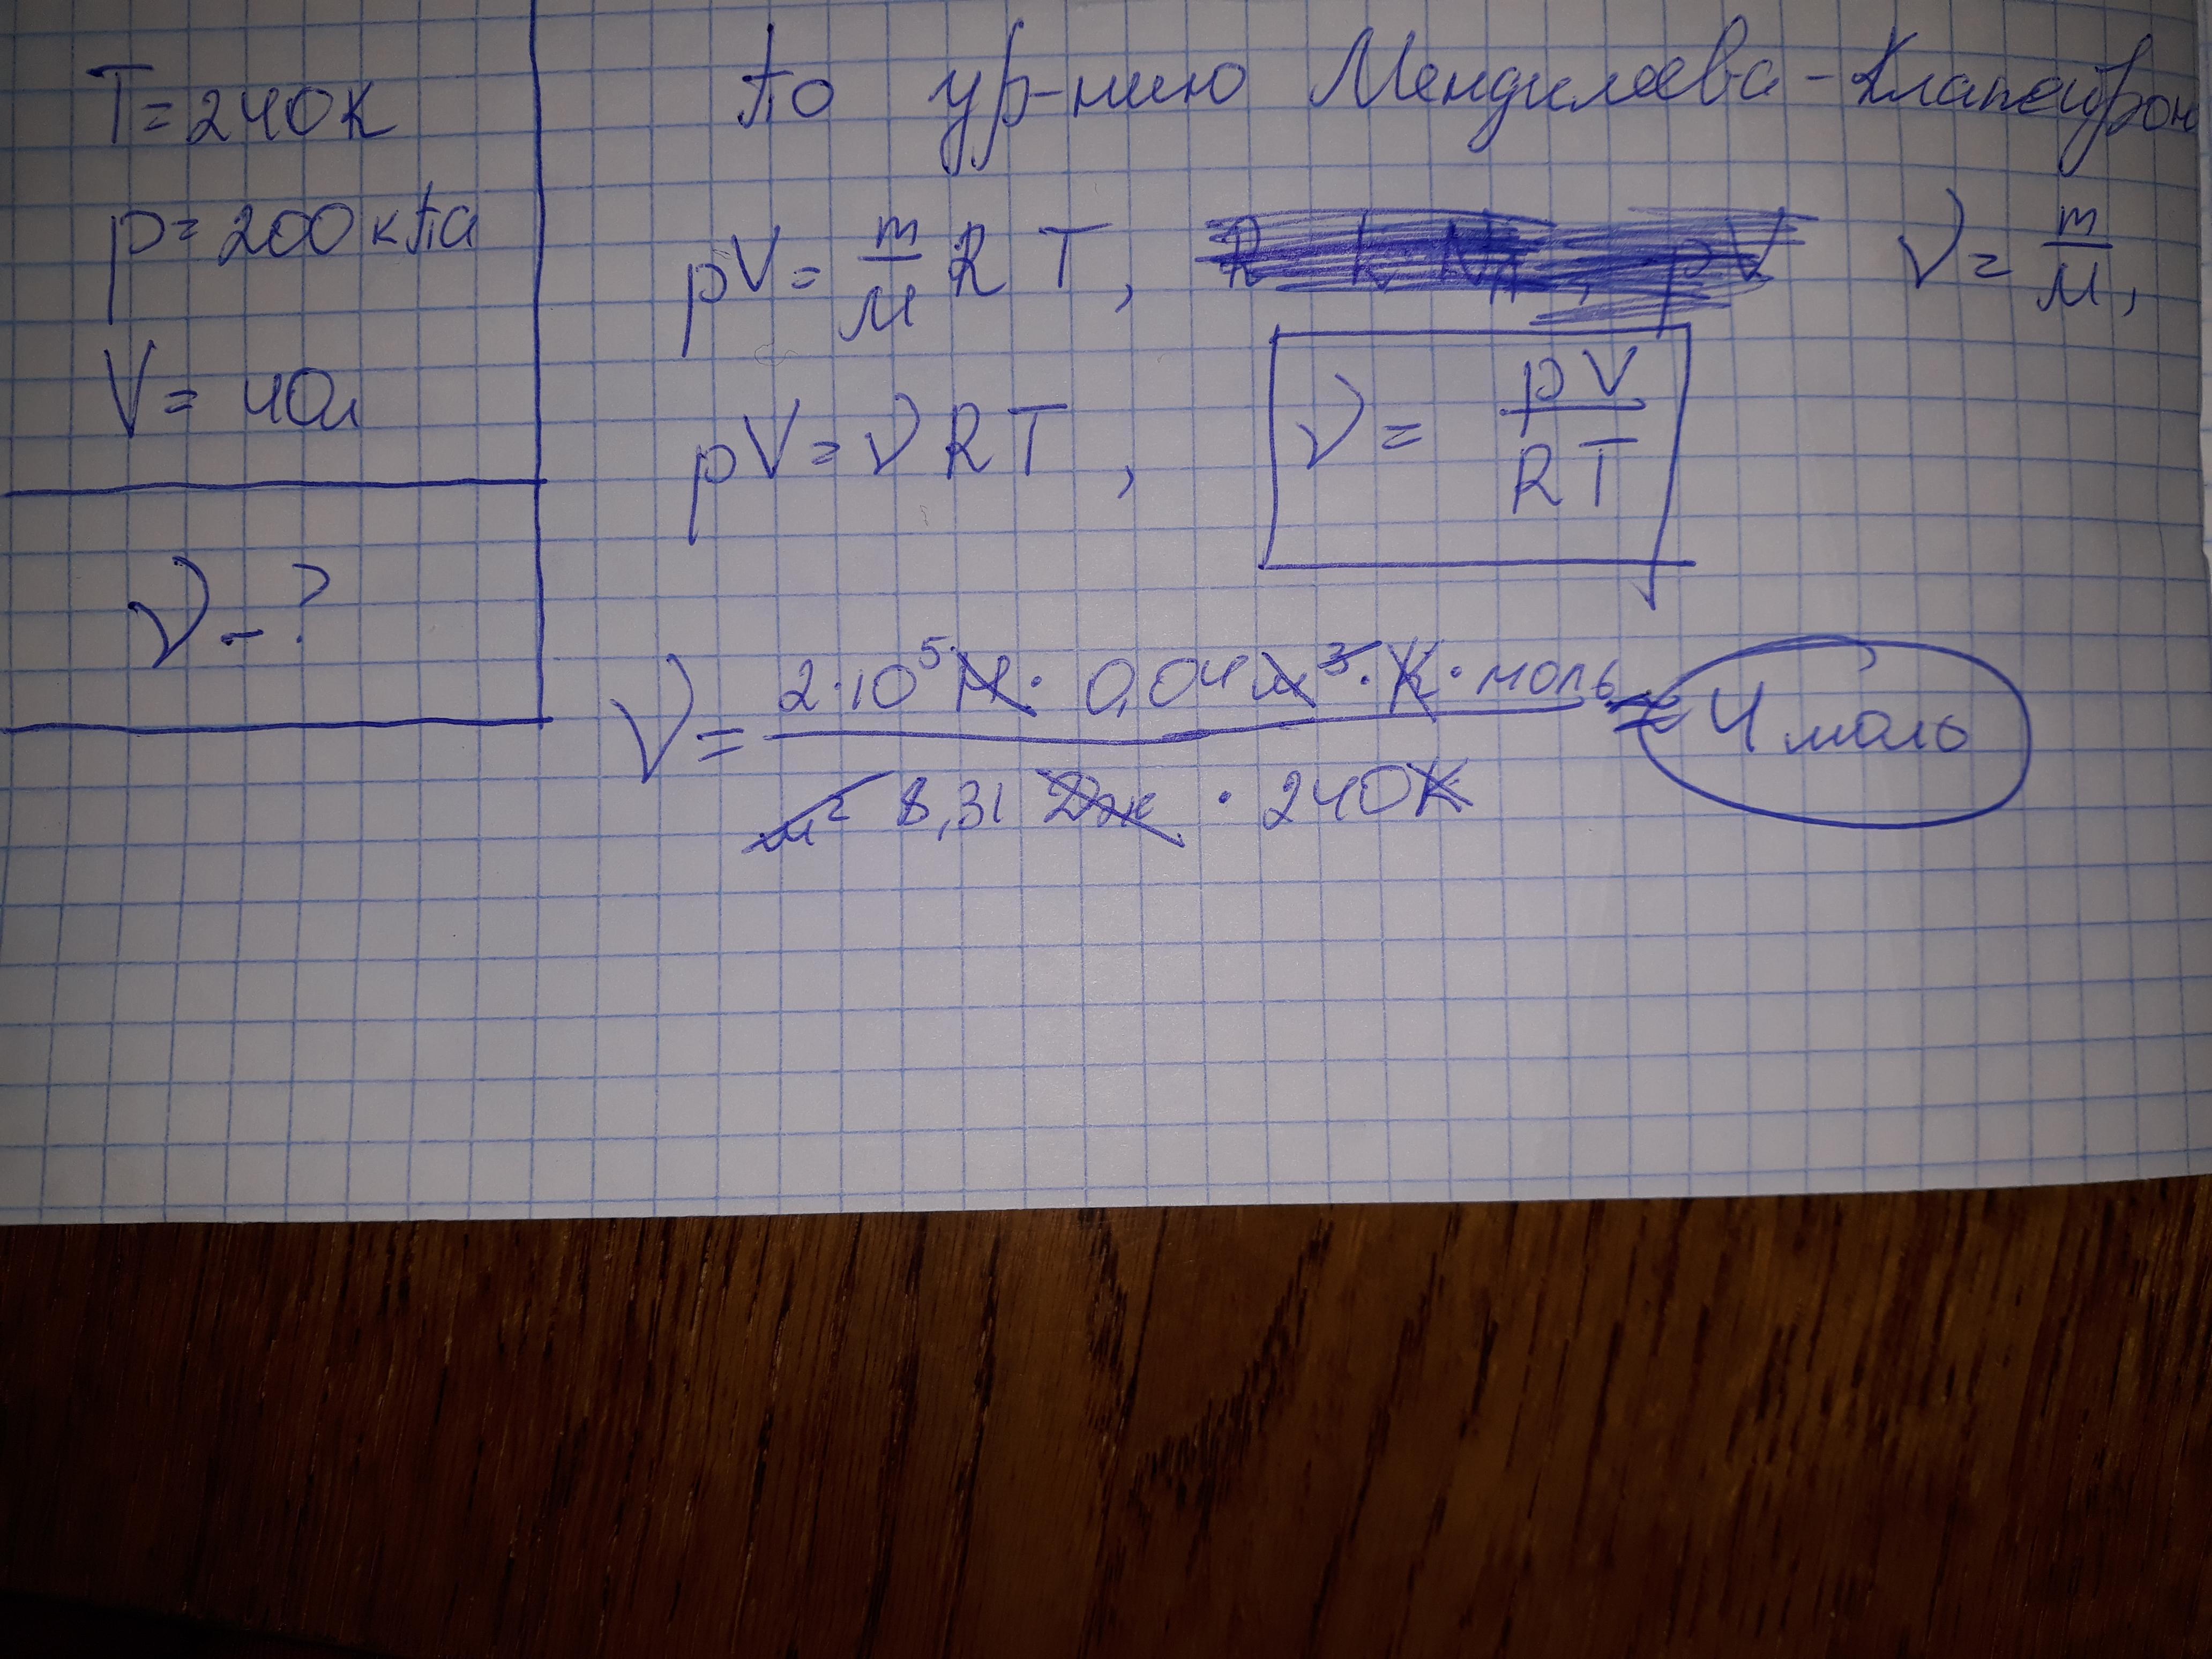 T = 240К
p = 200 кПа
V = 40л
ν - ?
По ур-нию Мендилеева-Клапейрон
pV = m/M R T, ν = m/M,
pV = ν R T, ν = pV/RT
ν = 2·10⁵ Н · 0,04 м³ · К · моль / м² 8,31 Дж · 240К ≈ 4 моль